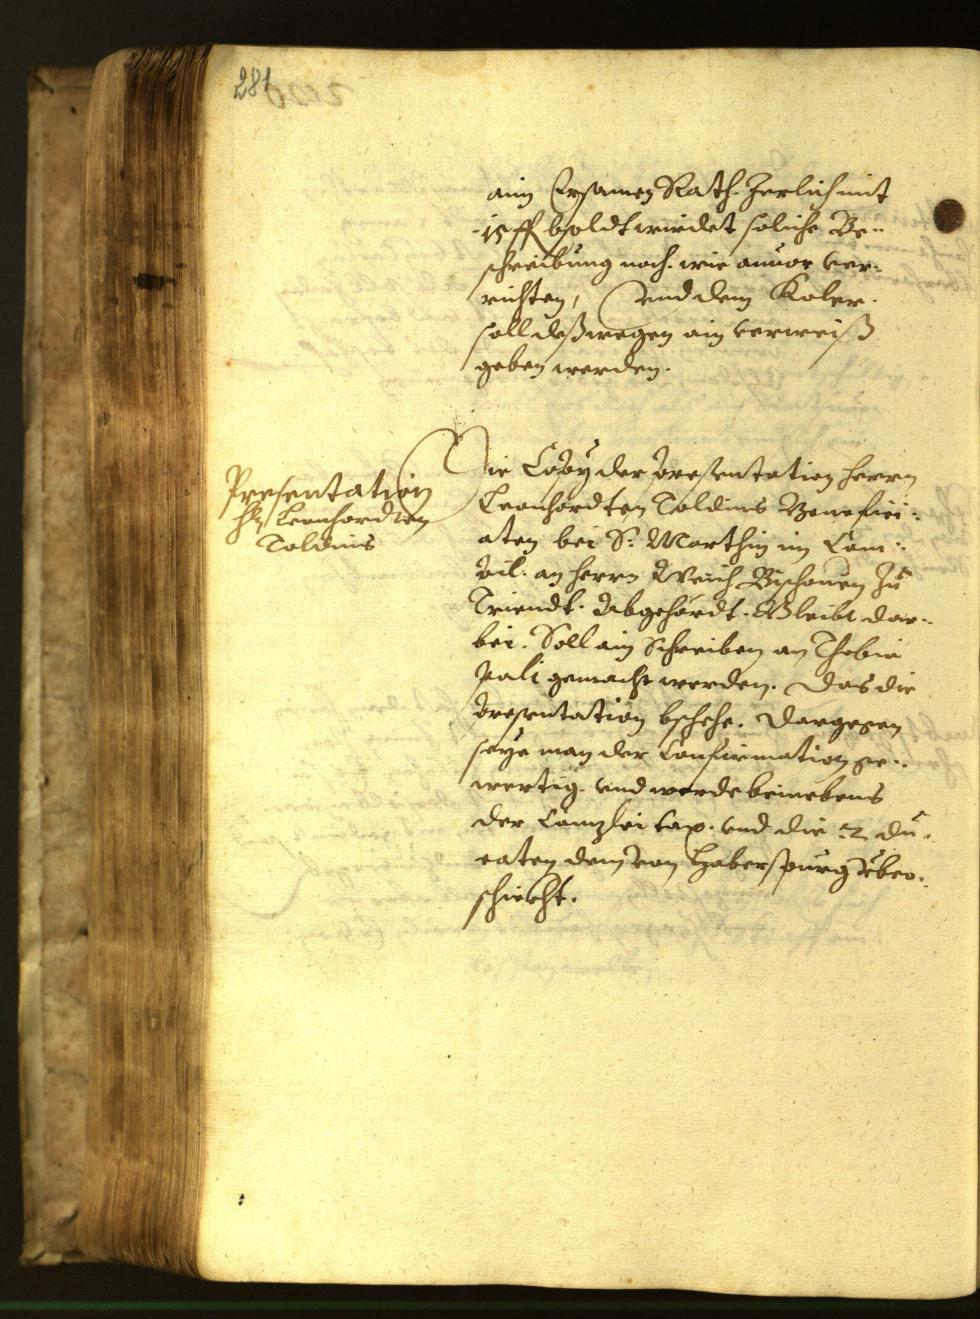 281
ainn Ersamen Rath Jerlich mit
15 ff bsoldt wirdet solche Be-
schreibung noch wie anuor ver-
richten, Vnd dem Koler
soll deßwegen ain verweiß
geben werden.
Presentation
Hr. Leonhardten
Toldins
Die Copy der presentation herrn
Leonhardten Toldins Benefici-
aten bei S: Marthin im Cam-
pil. an herrn Weich Bischouen zu
Triendt. Abgehördt. Bleibt dar-
bei. Soll ain Schreiben an Thobia
Pali gemacht werden. Das die
presentation bschehe. Dargegen
seye man der Confirmation ge-
wertig. vnd werde beinebens
der Canzlei tax. vnd die 2 du-
caten dem von Haberspurg vber-
schickht.